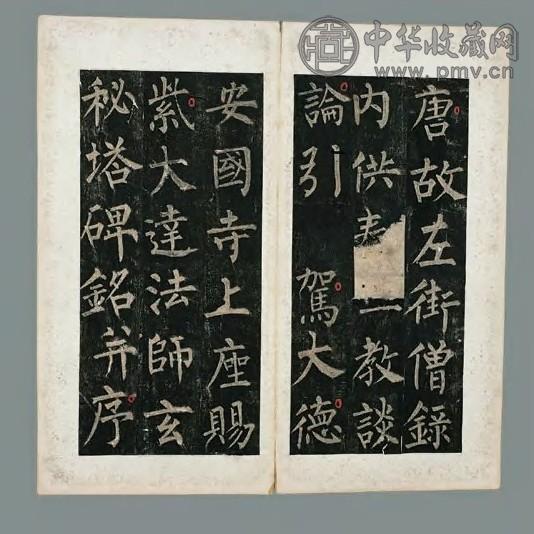 中华收藏网
www.pmv.cn
唐故左街僧錄
内供表一教談
論引 駕大德
安國寺上座賜
紫大達法師玄
秘塔碑銘并序